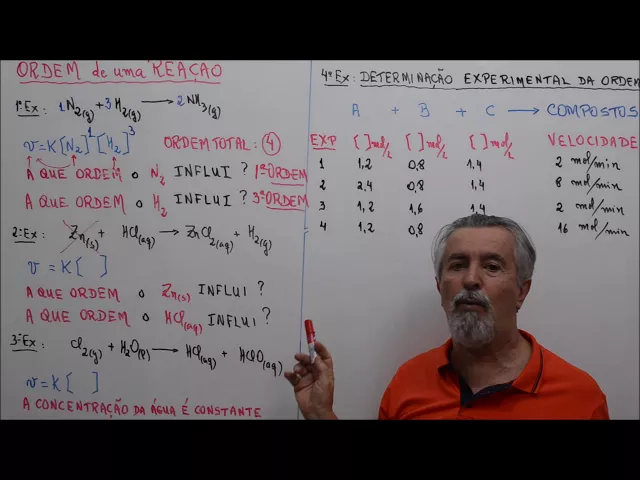 ORDEM de uma REAÇÃO
1ºEx: 1N2(g) + 3H2(g) → 2NH3(g)
v=K[N2]^1[H2]^3 ORDEM TOTAL: 4
A QUE ORDEM O N2 INFLUI ? 1ªORDEM
A QUE ORDEM O H2 INFLUI ? 3ªORDEM
2ºEx: Zn(s) + HCl(aq) → ZnCl2(aq) + H2(g)
v = K[ ]
A QUE ORDEM O Zn(s) INFLUI ?
A QUE ORDEM O HCl(aq) INFLUI ?
3ºEx: Cl2(g) + H2O(l) → HCl(aq) + HClO(aq)
v=K[ ]
A CONCENTRAÇÃO DA ÁGUA É CONSTANTE
4ºEx: DETERMINAÇÃO EXPERIMENTAL DA ORDEM
A + B + C → COMPOSTOS
EXP [ ]mol/L [ ]mol/L [ ]mol/L VELOCIDADE
1 1,2 0,8 1,4 2 mol/min
2 2,4 0,8 1,4 8 mol/min
3 1,2 1,6 1,4 2 mol/min
4 1,2 0,8 16 mol/min